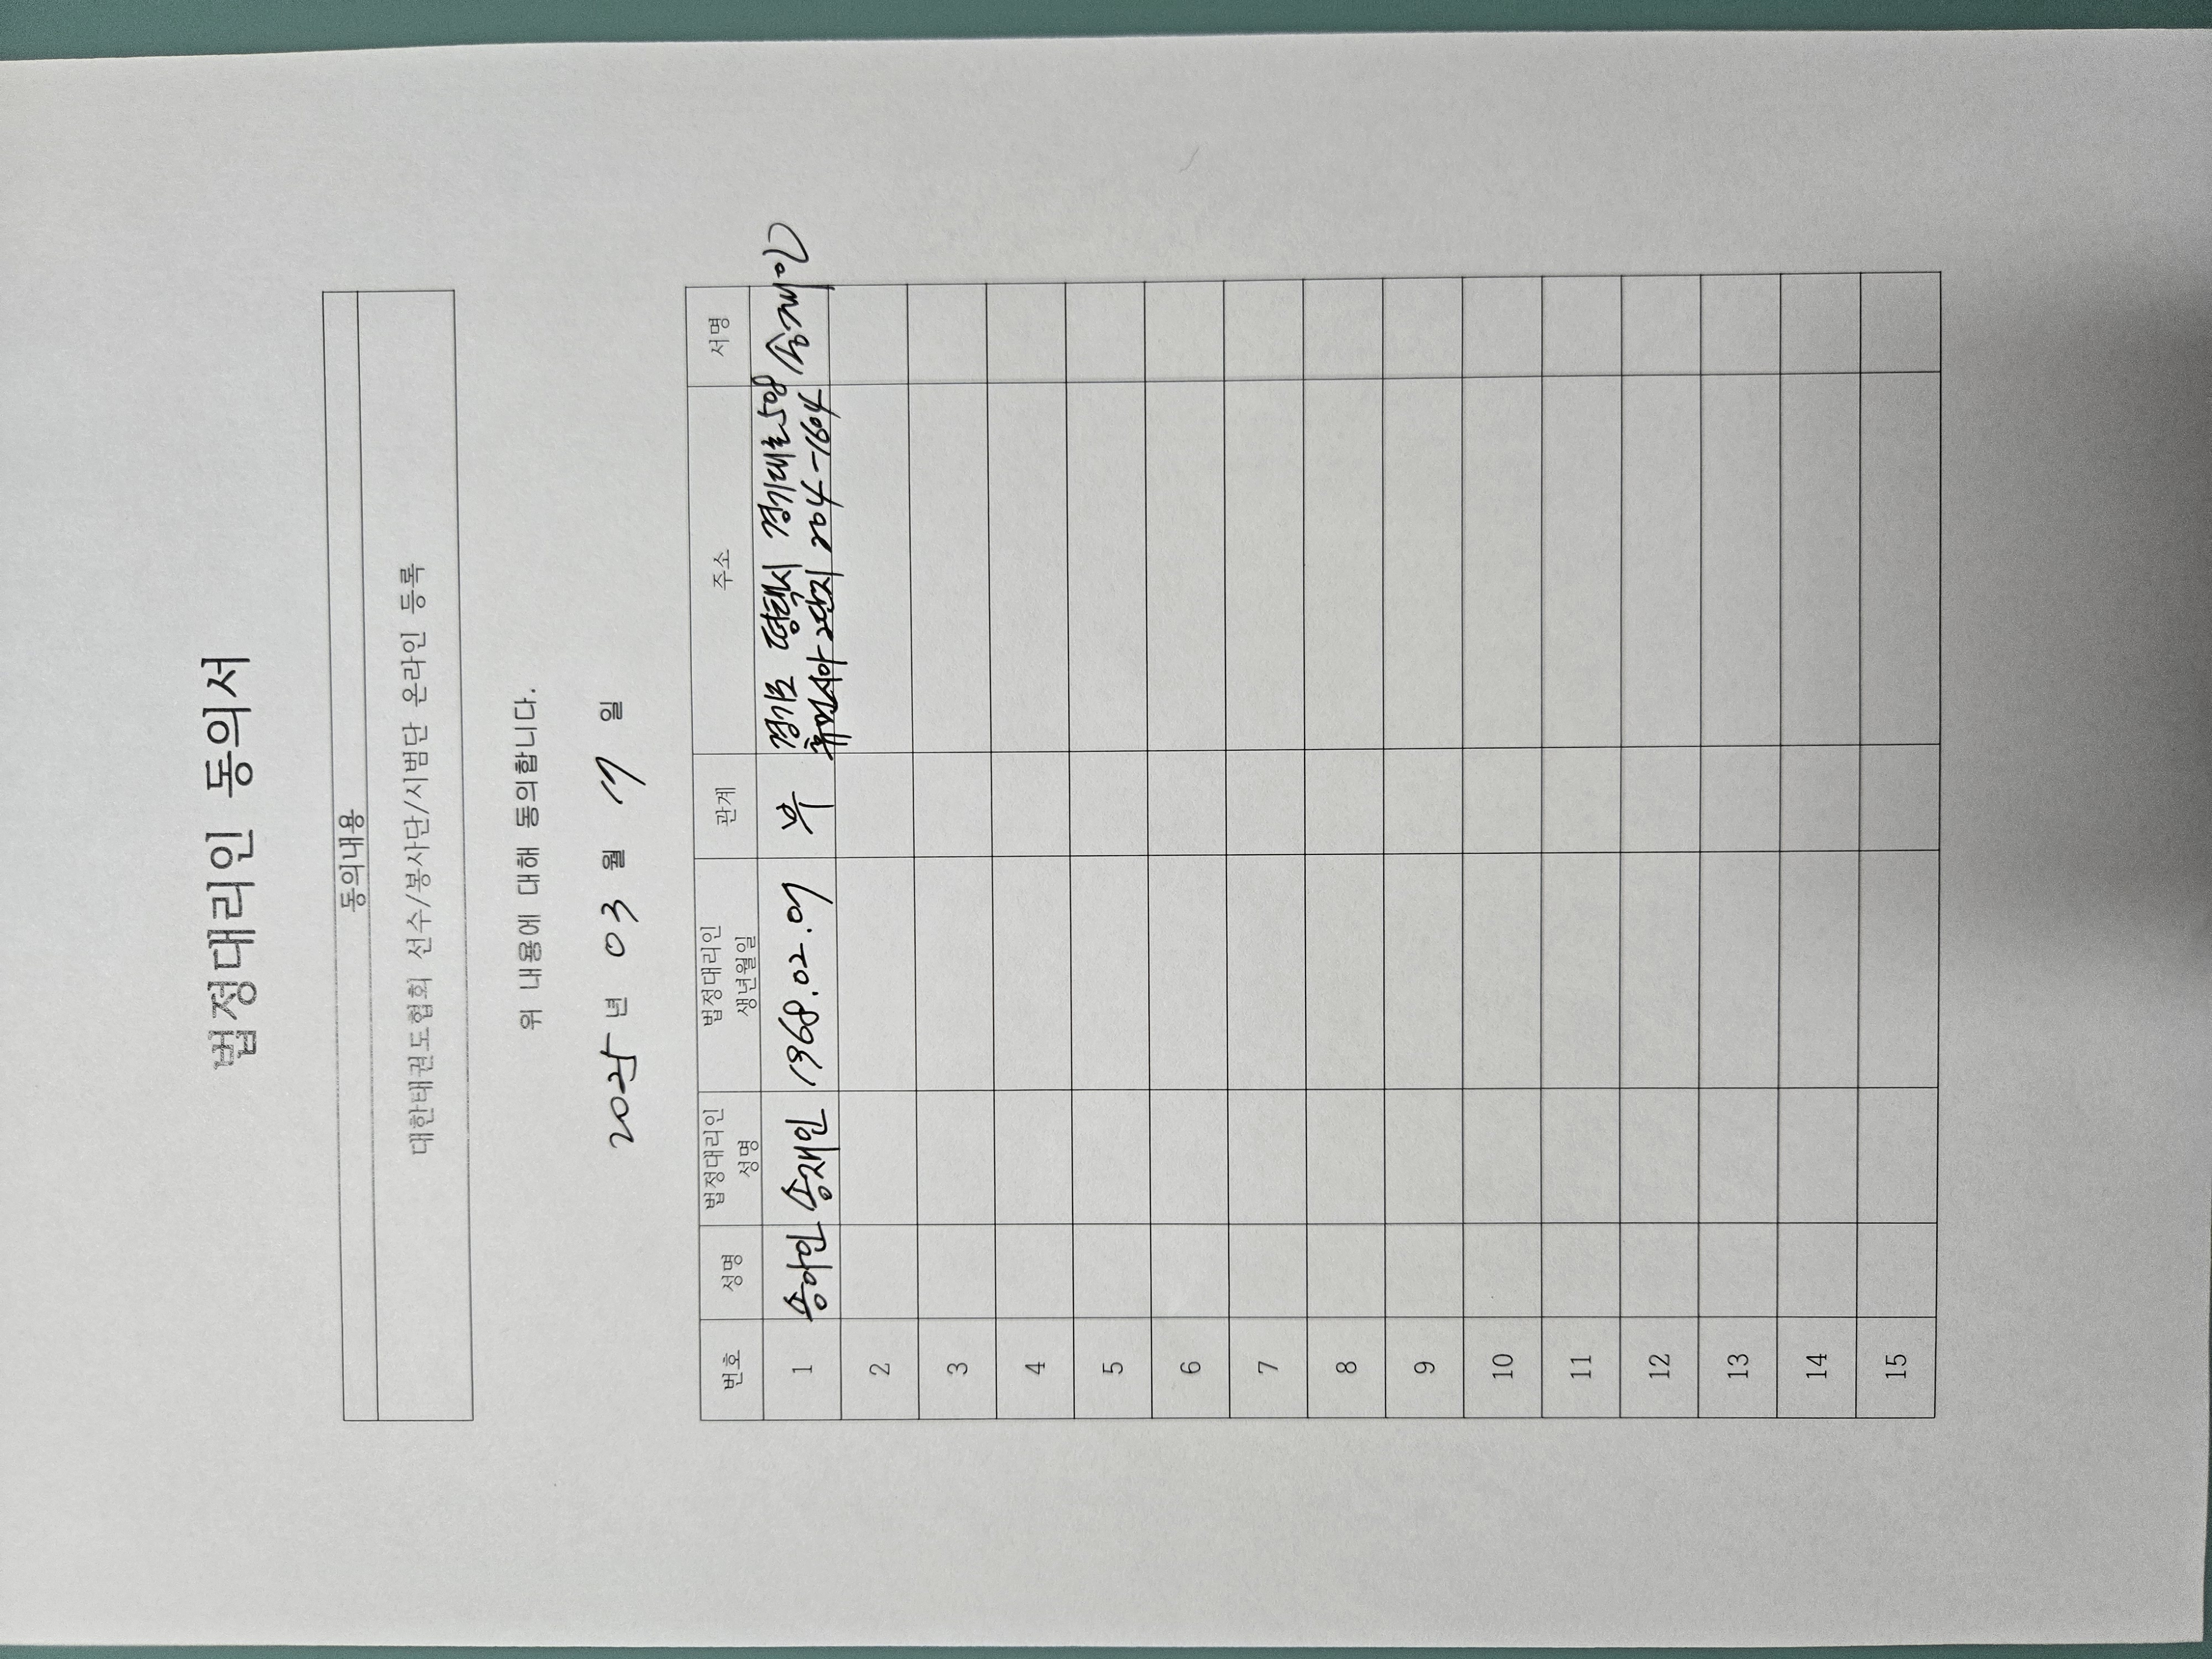 법정대리인 동의서
동의내용
대한태권도협회 선수/봉사단/시범단 온라인 등록
위 내용에 대해 동의합니다.
2025 년 03 월 17 일
번호 성명 법정대리인 성명 법정대리인 생년월일 관계 주소 서명
1 송아인 송재인 1968.02.07 부 경기도 평택시 경기대로 송재인
2단지 204-1604
2
3
4
5
6
7
8
9
10
11
12
13
14
15